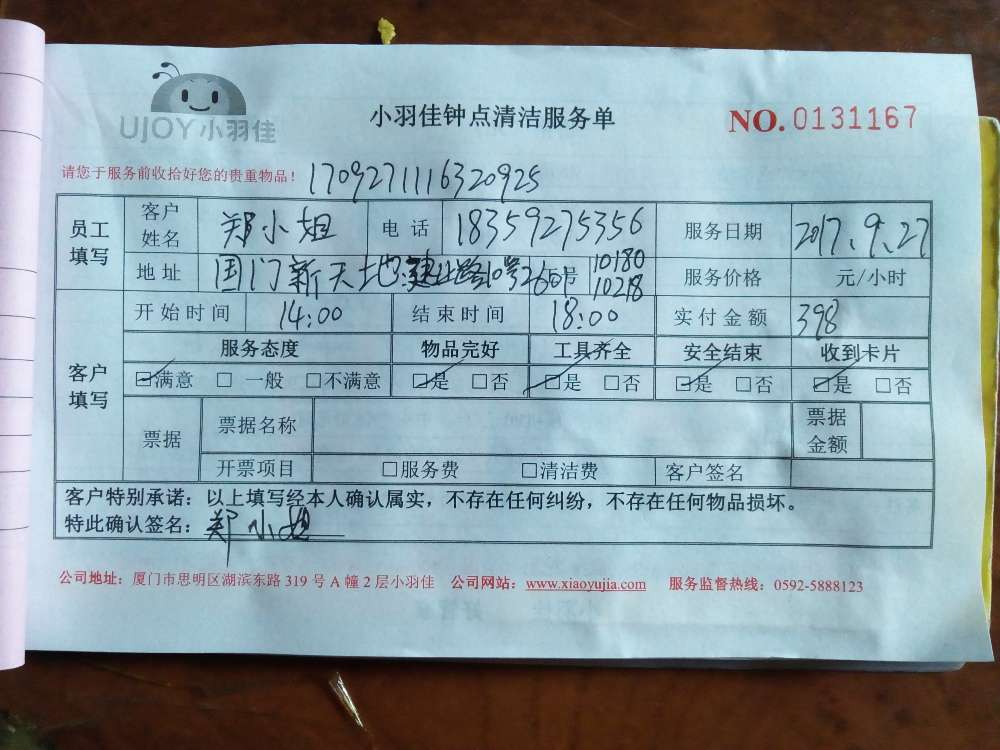 UJOY小羽佳
小羽佳钟点清洁服务单
NO. 0131167
请您于服务前收拾好您的贵重物品！ 1709271116320925
员工填写 客户姓名 郑小姐 电话 18359275356 服务日期 2017.9.27
地址 国门新天地 路10号2601 10180 10218 服务价格 元/小时
客户填写 开始时间 14:00 结束时间 18:00 实付金额 398
服务态度 物品完好 工具齐全 安全结束 收到卡片
☑满意 □一般 □不满意 ☑是 □否 ☑是 □否 ☑是 □否 ☑是 □否
票据 票据名称 票据金额
开票项目 □服务费 □清洁费 客户签名
客户特别承诺：以上填写经本人确认属实，不存在任何纠纷，不存在任何物品损坏。
特此确认签名：郑小姐
公司地址：厦门市思明区湖滨东路 319 号 A 幢 2 层小羽佳 公司网站：www.xiaoyujia.com 服务监督热线：0592-5888123